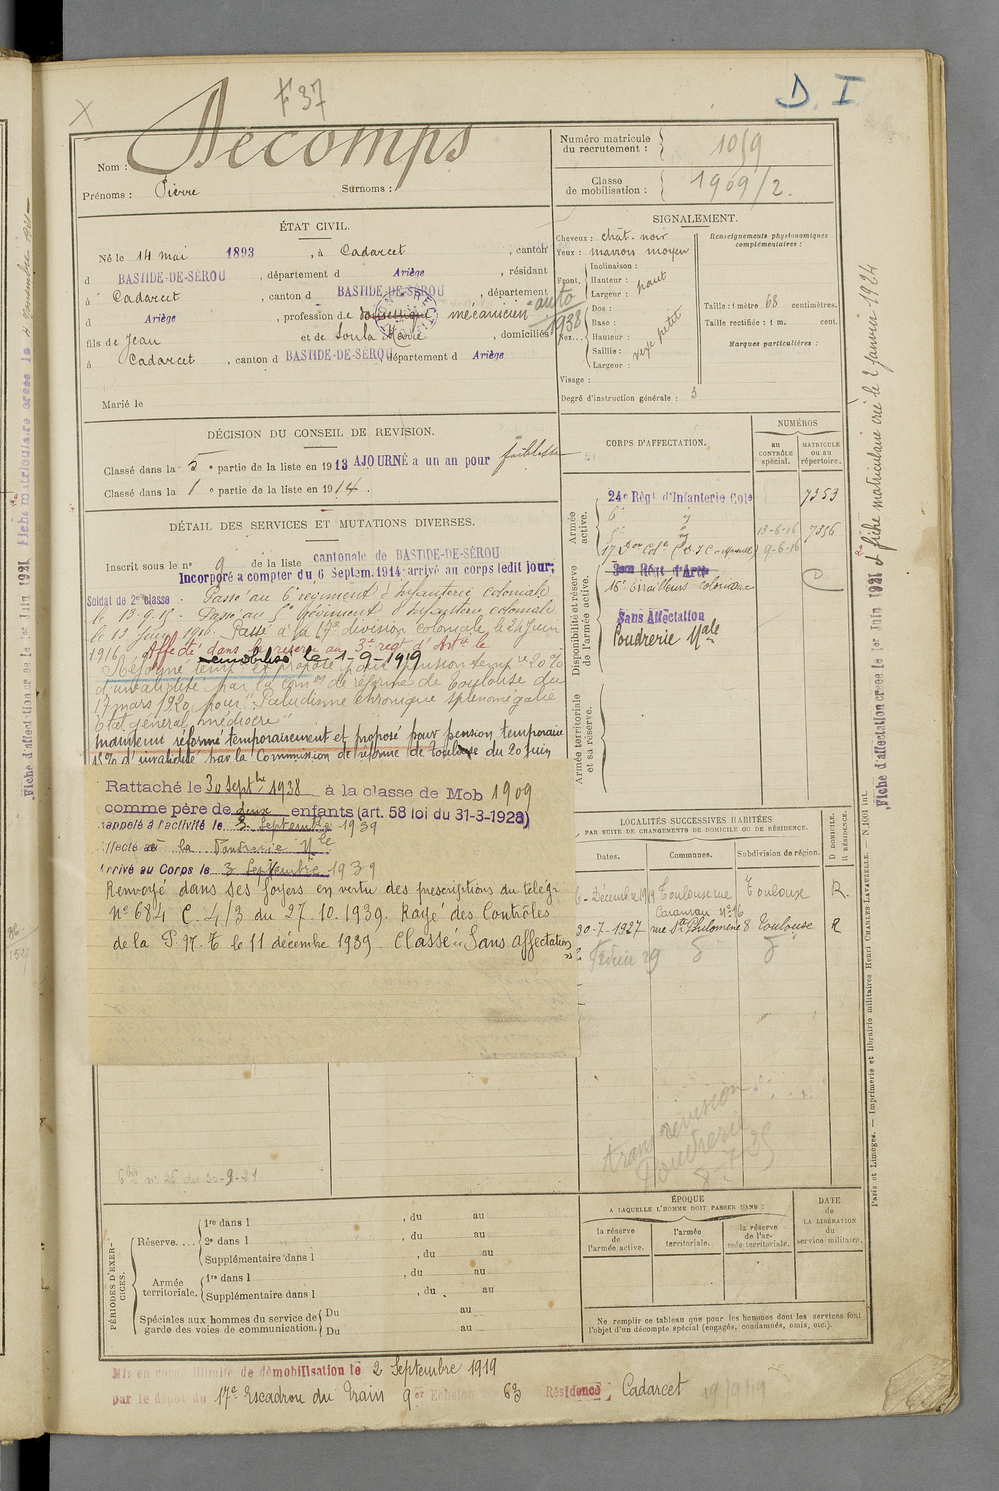 F 37
D. I
X
Nom : Decomps
Prénoms : Pierre Surnoms :
Numéro matricule du recrutement : 1059
Classe de mobilisation : 1909/2.
ÉTAT CIVIL.
Né le 14 mai 1893, à Cadarcet, canton
d BASTIDE-DE-SÉROU, département d Ariège, résidant
à Cadarcet, canton d BASTIDE-DE-SÉROU, département
d Ariège, profession de domestique mécanicien auto
1938
fils de Jean et de Soula Marie, domiciliés
à Cadarcet, canton d BASTIDE-DE-SÉROU département d Ariège
Marié le
SIGNALEMENT.
Cheveux : chât. noir
Yeux : marron moyen
Front. Inclinaison :
Hauteur : haut
Largeur :
Nez... Dos :
Base :
Hauteur :
Saillie : petit
Largeur :
Visage :
Degré d'instruction générale : 3
Renseignements physionomiques complémentaires :
Taille : 1 mètre 68 centimètres.
Taille rectifiée : 1 m. cent.
Marques particulières :
DÉCISION DU CONSEIL DE REVISION.
Classé dans la 5e partie de la liste en 1913 AJOURNÉ a un an pour faiblesse
Classé dans la 1e partie de la liste en 1914.
DÉTAIL DES SERVICES ET MUTATIONS DIVERSES.
Inscrit sous le n° 9 de la liste cantonale de BASTIDE-DE-SÉROU
Incorporé a compter du 6 Septem. 1914 arrivé au corps ledit jour;
Soldat de 2e classe. Passé au 6e régiment d'Infanterie coloniale
le 13-9-15 Passé au 5e régiment d'Infanterie coloniale
le 13 Juin 1916. Passé à la 17e division coloniale le 24 Juin
1916. Affecté dans la réserve au 3e régt d'Artie le
Démobilisé le 1-9-1919
Réformé temp. et proposé pour pension temp. 20 %
d'invalidité par la Comon de réforme de Toulouse du
17 mars 1920 pour "Paludisme chronique splénomégalie
Etat général médiocre"
Maintenu réformé temporairement et proposé pour pension temporaire
15% d'invalidité par la Commission de réforme de Toulouse du 20 Juin
Rattaché le 30 Septbre 1938 à la classe de Mob 1909
comme père de deux enfants (art. 58 loi du 31-3-1928)
rappelé à l'activité le 3 Septembre 1939
affecté à la Poudrerie Nle
Arrivé au Corps le 3 Septembre 1939
Renvoyé dans ses foyers en vertu des prescriptions du télégr.
N° 684 C. 4/3 du 27.10.1939. Rayé des Contrôles
de la P. N. T. le 11 décembre 1939. Classé "Sans affectation"
CORPS D'AFFECTATION.
NUMÉROS
au CONTRÔLE spécial.
MATRICULE ou au répertoire.
Armée active.
24e Régt d'Infanterie Cole 7353
6e " "
5e " " 13-6-16 7356
9-6-16
Disponibilité et réserve de l'armée active.
3eme Régt d'Artie
16e Tirailleurs coloniaux
Sans Affectation
Poudrerie Nale
Armée territoriale et sa réserve.
LOCALITÉS SUCCESSIVES HABITÉES
PAR SUITE DE CHANGEMENTS DE DOMICILE OU DE RÉSIDENCE.
Dates. Communes. Subdivision de région. D DOMICILE. R RÉSIDENCE.
6 - Décembre 1919 Toulouse rue Caraman N° 16 Toulouse R.
30-7-1927 rue Ste Philomène 8 Toulouse R
Février 29
Poudrerie
6bis n° 26 du 30-9-21.
PÉRIODES D'EXERCICES.
Réserve....
1re dans l , du au
2e dans l , du au
Supplémentaire dans l , du au
Armée territoriale.
1re dans l , du au
Supplémentaire dans l , du au
Spéciales aux hommes du service de garde des voies de communication.
Du au
Du au
ÉPOQUE
A LAQUELLE L'HOMME DOIT PASSER DANS :
la réserve de l'armée active.
l'armée territoriale.
la réserve de l'armée territoriale.
DATE de LA LIBÉRATION du service militaire.
Ne remplir ce tableau que pour les hommes dont les services font
l'objet d'un décompte spécial (engagés, condamnés, omis, etc.).
Mis en congé illimité de démobilisation le 2 Septembre 1919
par le dépôt du 17e Escadron du Train 9er Echelon 63 Résidence : Cadarcet 19/9/19
Paris et Limoges. — Imprimerie et librairie militaires Henri CHARLES-LAVAUZELLE. — N. 1001 int.
Fiche d'affectation créée le 1er Juin 1921 et fiche matriculaire crée le 2 Janvier 1924
Fiche d'affectation créée le 1er Juin 1921 Fiche matriculaire créée le 4 Novembre